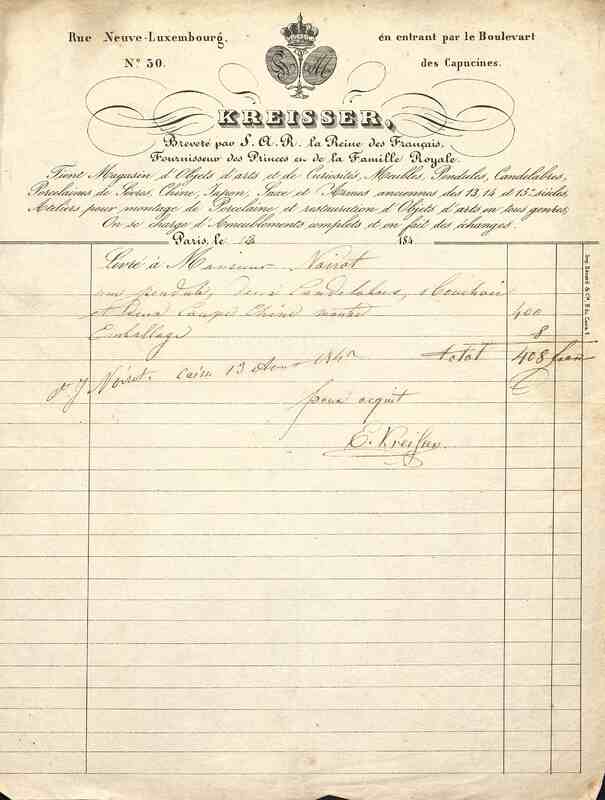 Rue Neuve-Luxembourg,
N° 30.
en entrant par le Boulevart
des Capucines.
KREISSER,
Breveté par S.A.R. la Reine des Français,
Fournisseur des Princes et de la Famille Royale.
Tient Magasin d'Objets d'arts et de Curiosités, Meubles, Pendules, Candelabres,
Porcelaines de Sèvres, Chine, Japon, Saxe et Armes anciennes des 13, 14 et 15me siècles,
Ateliers pour montage de Porcelaine et restauration d'Objets d'arts en tous genres,
On se charge d'Ameublements complets et on fait des échanges.
Paris, le 13 184
Livré à Monsieur Noirot
une pendule, deux Candelabres,
et deux coupe Chine monté 400
Emballage 8
total 408 francs
J Noirot. 13
pour acquit
E. Kreisser.